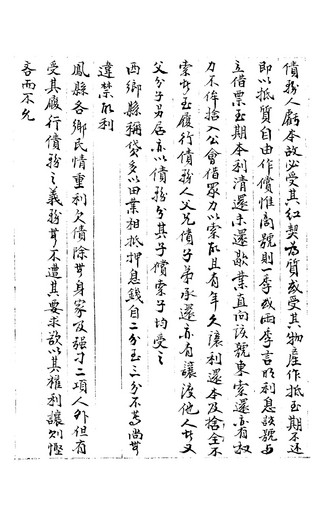 債務人虧本故必受其紅契為質或受其物產作抵至期不还
即以抵質自由作償惟商號則一季或兩季言明利息該號与
立借票至期本利清還未還歇業直向該號東索還亦有奴
力不侔捨入公會偕眾力以索取且有年久讓利還本及捨全不
索者至履行債務人父兄債子弟承還亦有讓渡他人者又
父分子另居亦以債務分其子償索子均受之
西鄉縣稱貸多以田業相抵押息錢自二分至三分不等尚無
違禁取利
鳳縣各鄉民情重利欠債除無身家及強丁二項人外但有
受其履行債務之義務無不遵其要求欲以其權利讓則慳
吝而不允